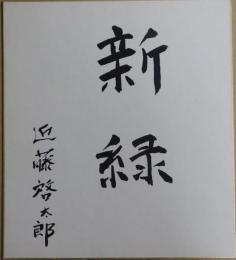 新緑
近藤啓太郎